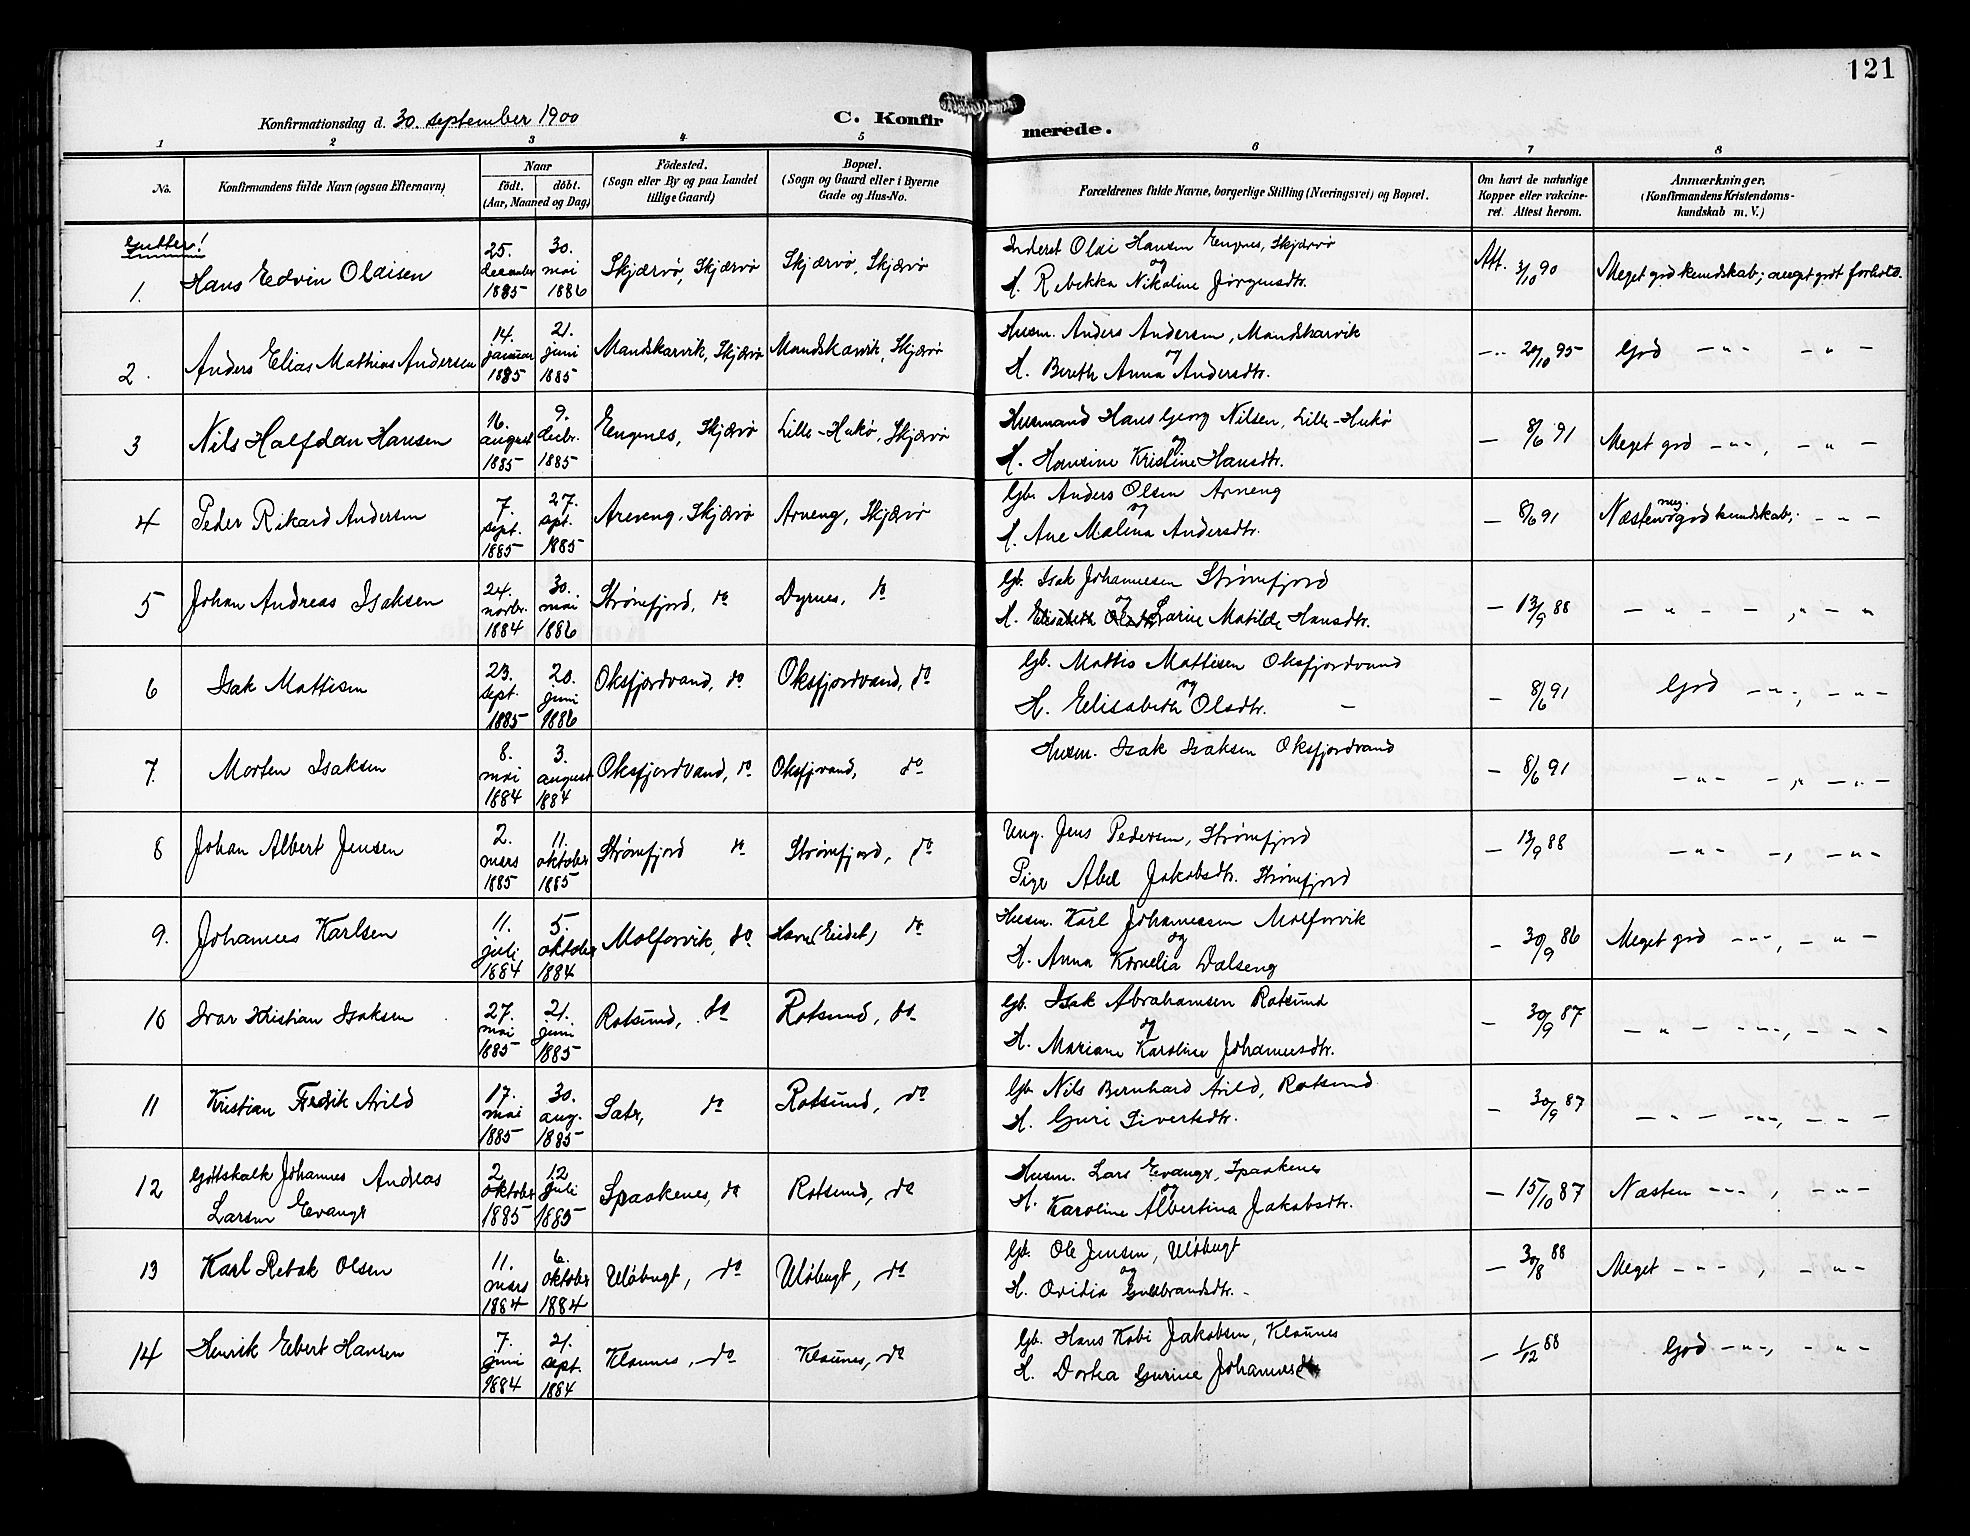 121
Konfirmationsdag d. 30. september 1900
C. Konfirmerede.
1 2 3 4 5 6 7 8
No.
Konfirmandens fulde Navn (ogsaa Efternavn)
Naar
födt. döbt.
(Aar, Maaned og Dag)
Födested.
(Sogn eller By og paa Landet
tillige Gaard)
Bopæl.
(Sogn og Gaard eller i Byerne
Gade og Hus-No.
Forældrenes fulde Navne, borgerlige Stilling (Næringsvei) og Bopæl.
Om havt de naturlige
Kopper eller vakcine-
ret. Attest herom.
Anmærkninger.
(Konfirmandens Kristendoms-
kundskab m. V.)
Gutter!
1. Hans Edvin Olaisen
25. december 1885
30. mai 1886
Skjærvø, Skjærvø
Skjærvø, Skjærvø
Inderst Olai Hansen Engnes, Skjærvø
og
H. Rebekka Nikoline Jørgensdtr.
Att. 3/10 90
Meget god kundskab; meget godt forhold.
2. Anders Elias Mathias Andersen
14. januar 1885
21. juni 1885
Mandskarvik, Skjærvø
Mandskarvik, Skjærvø
Husm. Anders Andersen, Mandskarvik
og
H. Bereth Anna Andersdtr.
-„- 20/10 95
God -„- -„-
3 Nils Halfdan Hansen
16. august 1885
9. decbr. 1885
Engnes, Skjærvø
Lille-Hukø, Skjærvø
Husmand Hans Georg Nilsen, Lille-Hukø
og
H. Hansine Kristine Hansdtr.
- 8/6 91
Meget god -„-, -„-
4 Peder Rikard Andersen
7. sept. 1885
27. spt. 1885
Arneng, Skjærvø
Arneng, Skjærvø
Gb. Anders Olsen Arneng
og
H. Ane Malena Andersdtr.
- 8/6 91
Næsten meg. god kundskab; -„-
5 Johan Andreas Isaksen
24. novbr. 1884
30. mai 1886
Strømfjord, do
Dyrnes, do
Gb. Isak Johannesen Strømfjord
og
H. Elisabeth Olsdtr Larine Matilde Hansdtr.
- 13/9 88
-„- -, -„-
6 Isak Mattisen
23. sept. 1885
20. juni 1886
Oksfjordvand, do
Oksfjordvand, do
Gb. Mattis Mattisen Oksfjordvand
og
H. Elisabeth Olsdtr. -
- 8/6 91
God -„-, -„-
7. Morten Isaksen
8. mai 1884
3. august 1884
Oksfjordvand, do
Oksfjvand, do
Husm. Isak Isaksen Oksfjordvand
- 8/6 91
-„- -, -„-
8 Johan Albert Jensen
2. mars 1885
11. oktober 1885
Strømfjord do
Strømfjord, do
Ung. Jens Pedersen, Strømfjord
Pige Abel Jakobsdtr. Strømfjord
- 13/9 88
-„- -, -„-
9. Johannes Karlsen
11. juli 1884
5. oktober 1884
Molforvik, do
Havn (Eidet) do
Husm. Karl Johannessen Molforvik
og
H. Anna Kornelia Dalseng
- 30/9 86
Meget god -„-, -„-
10 Ivar Kristian Isaksen
27. mai 1885
21. juni 1885
Rotsund, do
Rotsund, do
Gb. Isak Abrahamsen Rotsund
og
H. Mariane Karoline Johannesdtr.
- 30/9 87
-„- -„-, -„-
11 Kristian Fredrik Arild
17. mai 1885
30. aug. 1885
do
Rotsund, do
Gb. Nils Bernhard Arild, Rotsund
H. Guri Sivertsdtr.
- 30/9 87
-„- -„-, -„-
12 Gottskalk Johannes Andreas
Larsen Evanger
2. oktober 1885
12. juli 1885
Spaakenes, do
Rotsund, do
Husm. Lars Evanger, Spaakenes
og
H. Karoline Albertina Jakobsdtr.
- 15/10 87
Næsten -„-, -„-
13 Karl Rebak Olsen
11. mars 1884
6. oktober 1884
Uløbugt, do
Uløbugt, do
Gb. Ole Jensen, Uløbugt
og
H. Ovidia Guldbrandsdtr. -
- 30/8 88
Meget -„-, -„-
14 Henrik Ebert Hansen
7. juni 1884
21. sept. 1884
Klaunes, do
Klaunes, do
Gb. Hans Kobi Jakobsen, Klaunes
H. Dortea Gurine Johannesdtr
- 1/12 88
God -„-, -„-